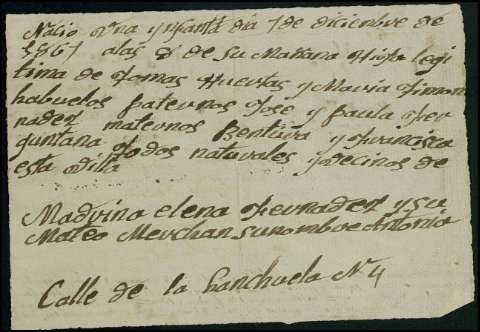 Nacio Vna ynfanta dia 7 de diciembre de
1867 alas 8 de su Mañana Hija legi
tima de Tomas Huertas y Maria
habuelos paternos Jose y paula Fer
nadez maternos Bentura y Francisca
quintana todos naturales y vecinos de
esta villa
Madrina elena Fernadez y su
Mateo Merchan su nombre Antonia
Calle de la Canchuela N 4